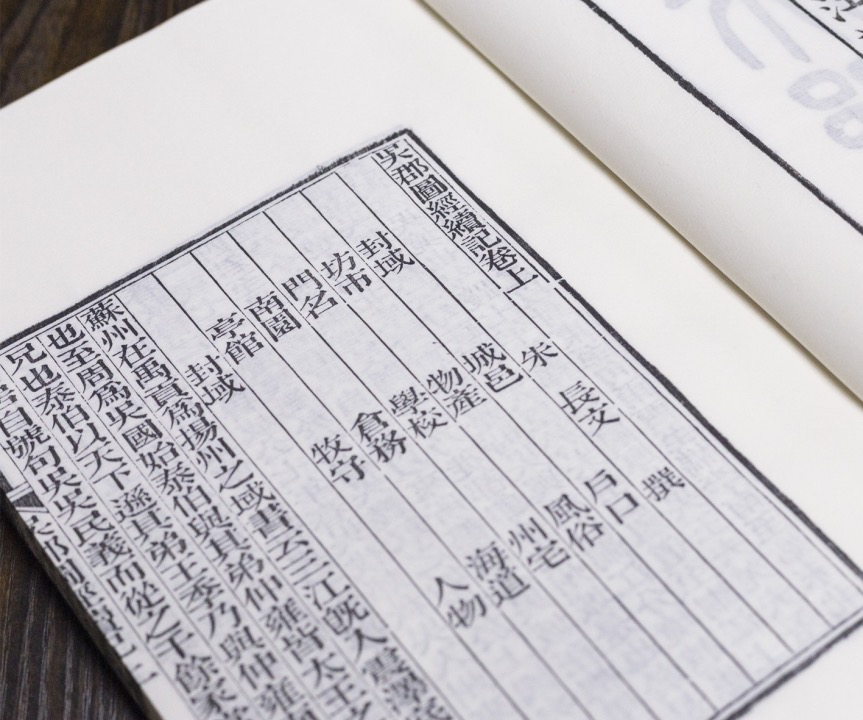 吳郡圖經續記卷上
朱 長文 撰
封域 城邑 戶口
坊市 物產 風俗
門名 學校 州宅
南園 倉務 海道
亭館 牧守 人物
封域
蘇州在禹貢爲揚州之域書云三江既入震澤底
也至周爲吳國始泰伯與其弟仲雍皆太王之
兄也泰伯以天下遜其弟王季乃與仲雍
自號句吳吳民義而從之千餘家